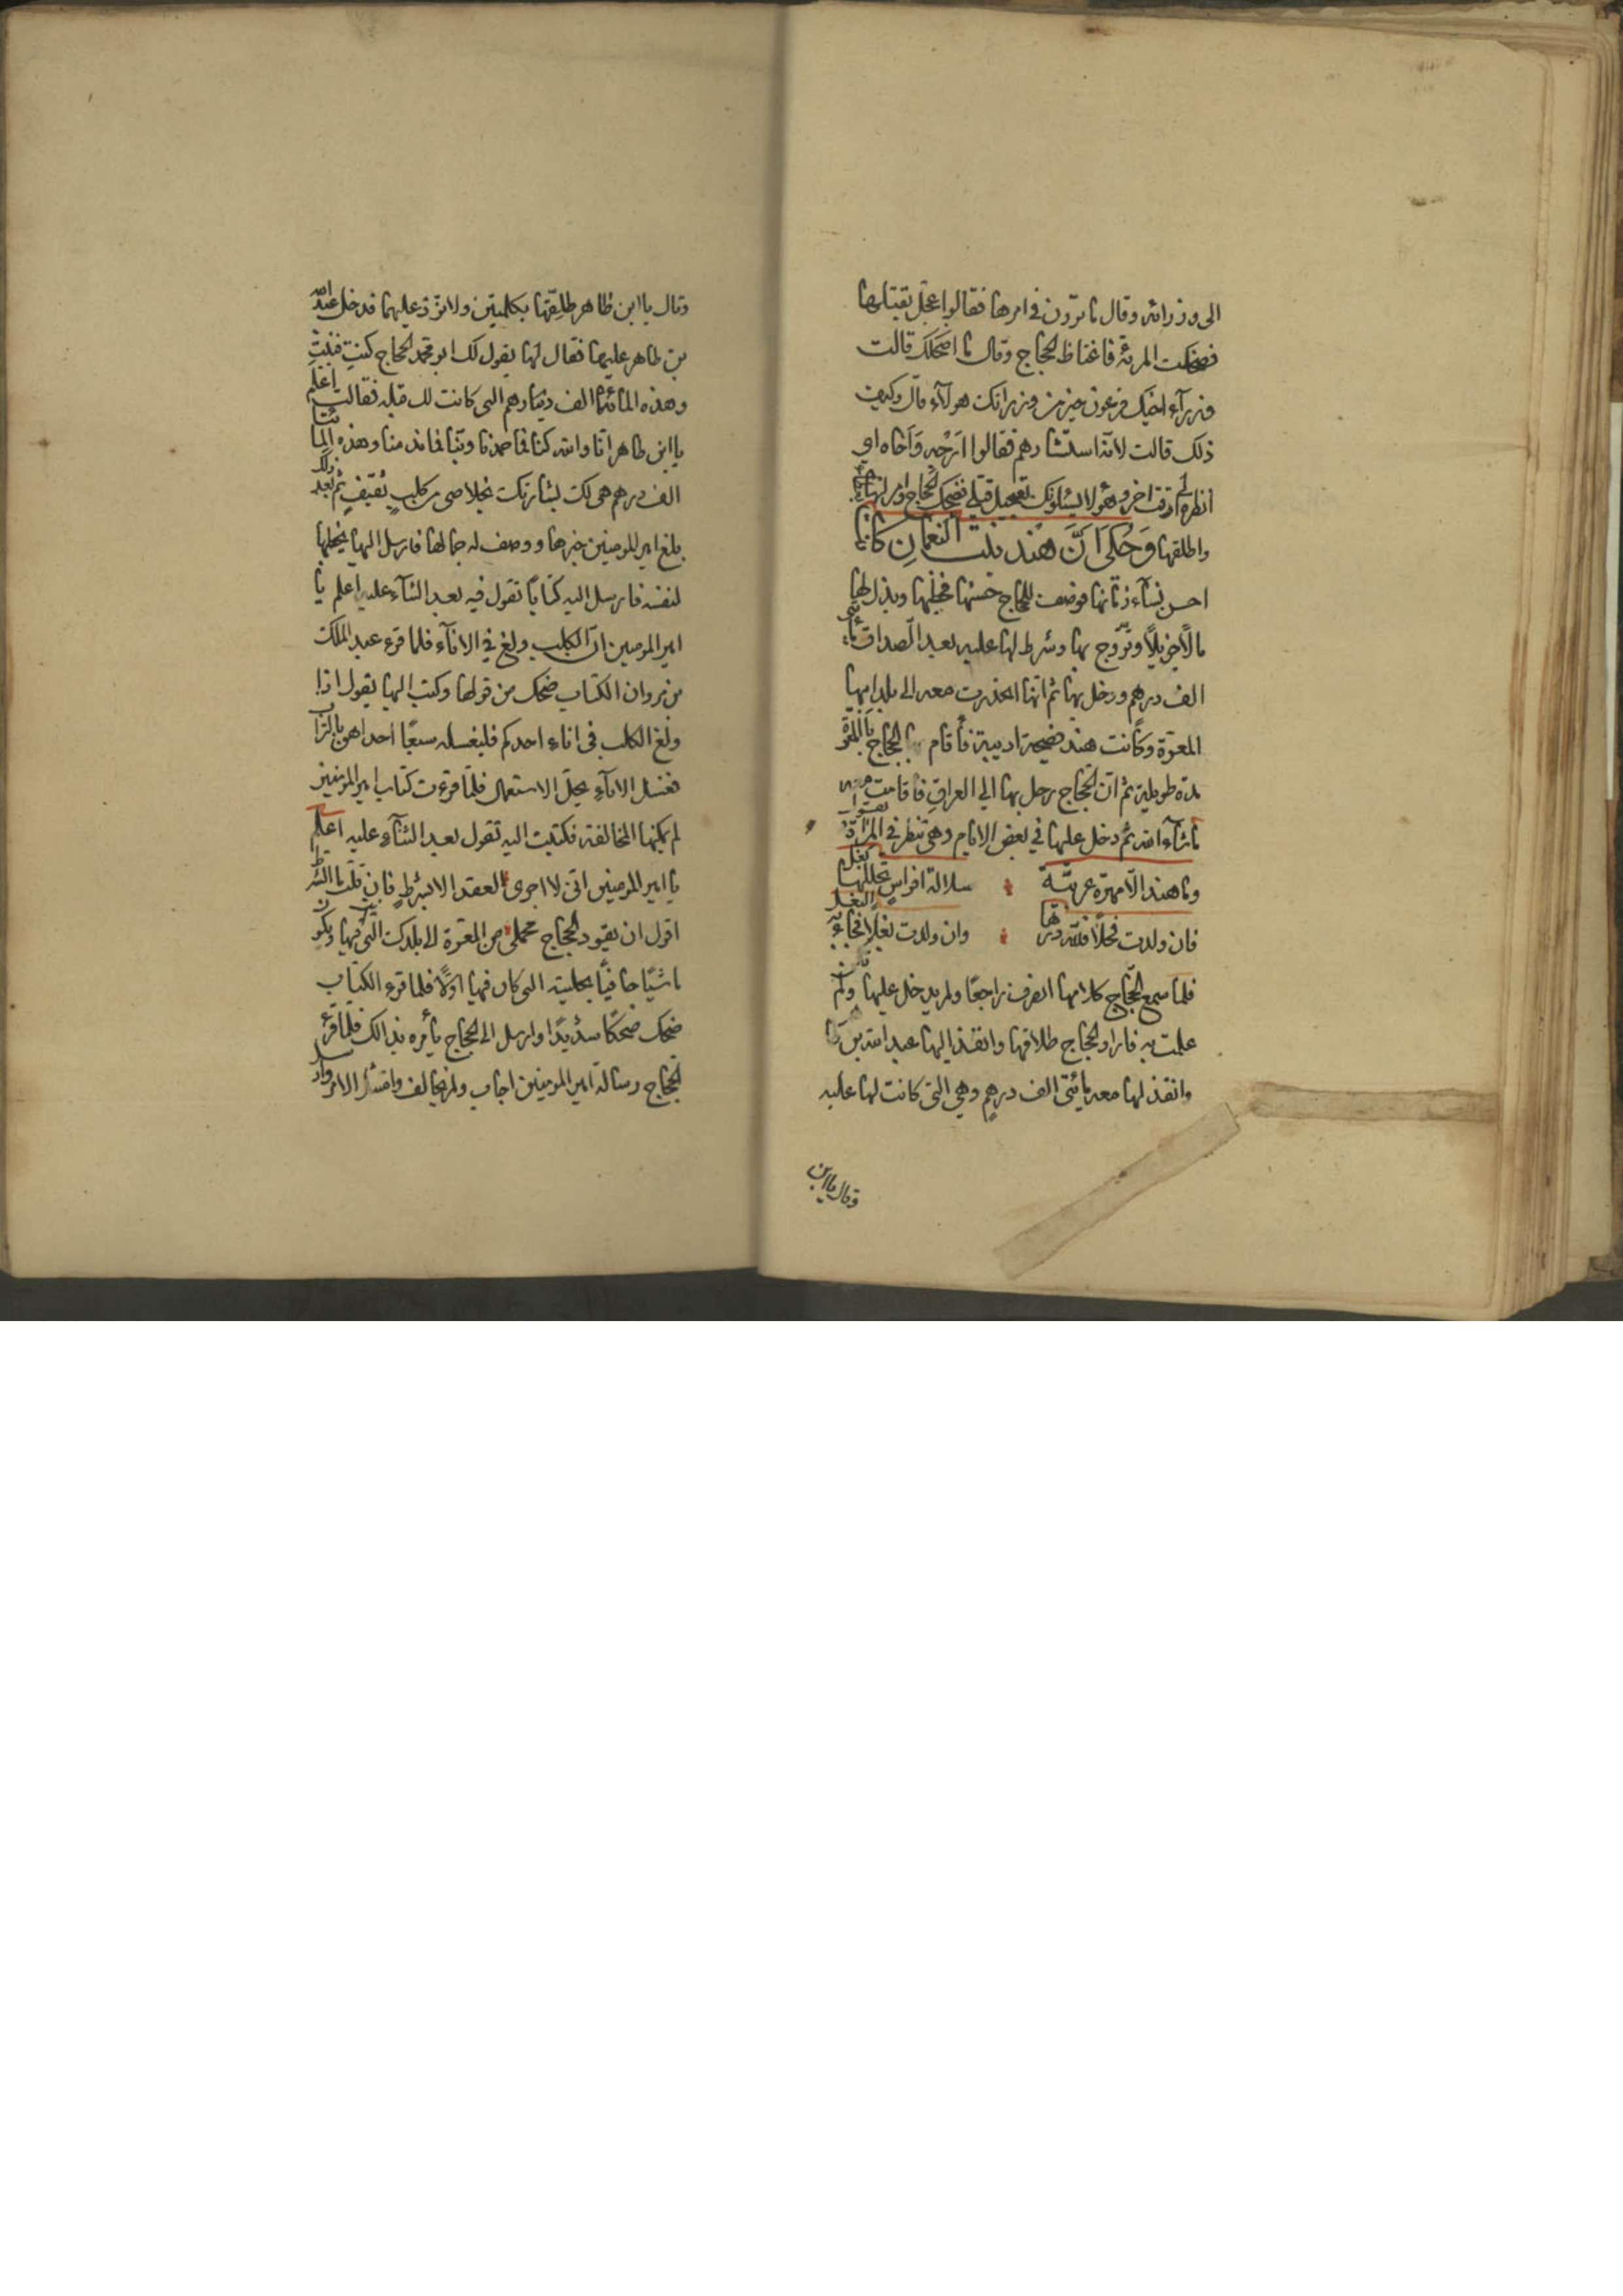 الى وزرائه وقال ما ترون في امرها فقالوا عجل بقتلها
فضحكت المرئة فاغتاظ الحجاج وقال ما اضحكك قالت
وزراء اخيك فرعون خير من وزرائك هولاء قال وكيف
ذلك قالت لانه استشارهم فقالوا ارجه واخاه اي
انظره لوقت اخر وهولا يسئلونك تعجيل قتلي فضحك الحجاج وامر لها
واطلقها وَحُكى اَنَّ هند بنت النعمانِ كانت
احسن نساء زمانها فوصف للحجاج حسنها فخطبها وبذل لها
مالًا جزيلًا وتزوج بها وشرط لها عليه بعد الصداق مأتي
الف درهم ودخل بها ثم انها انحدرت معه الى بلد ابيها
المعرّة وكانت هند فصيحة اديبة فأقام الحجاج بالمعرّة
مدة طويلة ثم ان الحجاج رحل بها الي العراق فاقامت معه
ماشاء الله ثم دخل عليها في بعض الايام وهي تنظر في المرآة وتقول
وما هند الّا مهرة عربيّة سلالة افراسٍ تحللها بغل
فان ولدت فحلًا فلله درها وان ولدت بغلًا فجاء به البغل
فلما سمع الحجّاج كلامها انصرف راجعًا ولم يدخل عليها ولم تكن
علمت به فاراد الحجاج طلاقها وانفذ اليها عبد الله بن طاهر
وانفذ لها معه مائتي الف درهمٍ وهي التي كانت لها عليه
وقال يا ابن
وقال يا ابن طاهر طلقها بكلمتين ولا تزد عليهما فدخل عبد الله
بن طاهر عليها فقال لها يقول لك ابو محمد الحجاج كنتِ فبنتِ
وهذه المائتا الف درهم التي كانت لك قبله فقالت اعلم
يا ابن طاهر انا والله كنا فما حمدنا وبنا فما ندمنا وهذه المائتا
الف درهم هي لك بشارتك بخلاصي من كلب ثقيفٍ ثم بعد ذلك
بلغ امير المومنين خبرها ووصف له جمالها فارسل اليها يخطبها
لنفسه فارسل اليه كتاباً تقول فيه بعد الثناء عليه اعلم يا
امير المومنين ان الكلب ولغ في الاناء فلما قرء عبد الملك
من مروان الكتاب ضحك من قولها وكتب اليها يقول اذا
ولغ الكلب في اناء احدكم فليغسله سبعًا احداهن بالتراب
فغسل الاناء يحل الاستعمال فلما قرءت كتاب امير المومنين
لم يمكنها المخالفة فكتبت اليه تقول بعد الثناء عليه اعلم
يا امير المومنين انّي لا اجري العقد الا بشرطٍ فان قلت ما الشرط
اقول ان يقود الحجاج محملي من المعرّة الى بلدك التي انت فيها ويكون
ماشيًا حافيًا بحليته التي كان فيها اولًا فلما قرء الكتاب
ضحك ضحكًا شديدًا وارسل الى الحجاج يأمره بذالك فلما قرء
الحجاج رسالة امير المومنين اجاب ولم يخالف وامتثل الامر وارسل